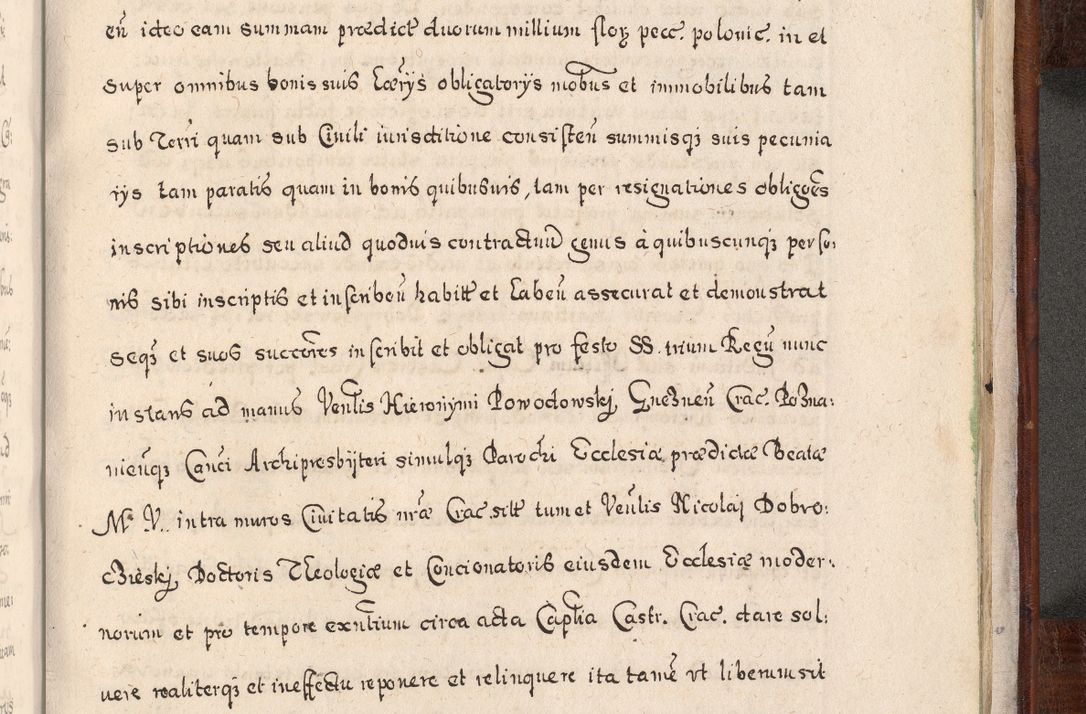 eñ ideo eam summam prædictꝭ duorum millium floɣ pecc. polonic. in et
super omnibus bonis suis hæri̅ys obligatorys mob̅us et immobilibus tam
sub Terri quam sub Civili iurisditione consisteñ summisqꝫ suis pecunia
rys tam paratis quam in bonis quibusuis, tam per resignationes obligoẽs
inscriptiones seu aliud quoduis contractuũ genus à quibuscunqꝫ perso:
nis sibi inscriptis et inscribeñ habitꝭ et habeñ assecurat et demonstrat
seqꝫ et suos succõres inscribit et obligat pro festo SS. trium Regũ nunc
instans ad manus Veñlis Hieronymi Powodowskj, Gnezneñ Crac. Pozna:
nieñqꝫ Canci Archipresbyteri simulqꝫ Parochi Ecclesiæ prædictæ Beatæ
M. V. intra muros Ciuitatis nr̃æ Crac. sitꝭ tum et Veñlis Nicolaj Dobro:
czieskj, Doctoris Theologiæ et Concionatoris eiusdem Ecclesiæ moder:
norum et pro tempore exñtium circa acta Captl̃ia Castr. Crac. dare sol:
uere realiterqꝫ et ineffectu reponere et relinquere ita tamẽ vt liberum sit